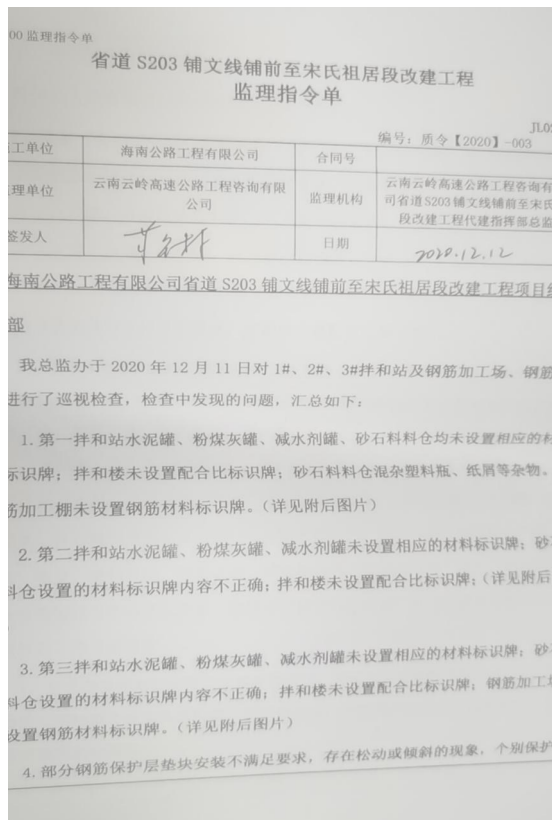 00 监理指令单
省道 S203 铺文线铺前至宋氏祖居段改建工程
监理指令单
JL02
编号：质令【2020】-003
工单位 海南公路工程有限公司 合同号
理单位 云南云岭高速公路工程咨询有限公司 监理机构 云南云岭高速公路工程咨询有
司省道 S203 铺文线铺前至宋氏
段改建工程代建指挥部总监
签发人 日期 2020.12.12
海南公路工程有限公司省道 S203 铺文线铺前至宋氏祖居段改建工程项目经
部
我总监办于 2020 年 12 月 11 日对 1#、2#、3#拌和站及钢筋加工场、钢筋
进行了巡视检查，检查中发现的问题，汇总如下：
1. 第一拌和站水泥罐、粉煤灰罐、减水剂罐、砂石料料仓均未设置相应的材
标识牌；拌和楼未设置配合比标识牌；砂石料料仓混杂塑料瓶、纸屑等杂物。
筋加工棚未设置钢筋材料标识牌。（详见附后图片）
2. 第二拌和站水泥罐、粉煤灰罐、减水剂罐未设置相应的材料标识牌；砂
料仓设置的材料标识牌内容不正确；拌和楼未设置配合比标识牌；（详见附后
3. 第三拌和站水泥罐、粉煤灰罐、减水剂罐未设置相应的材料标识牌；砂
料仓设置的材料标识牌内容不正确；拌和楼未设置配合比标识牌；钢筋加工场
设置钢筋材料标识牌。（详见附后图片）
4. 部分钢筋保护层垫块安装不满足要求，存在松动或倾斜的现象，个别保护